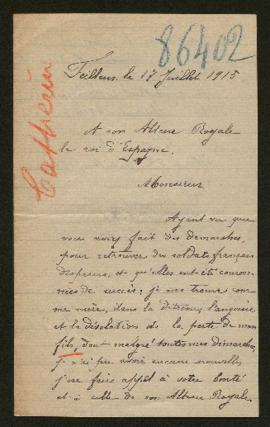 86402
le 17 Juillet 1915
A son Altesse Royale
le roi d'Espagne.
Monsieur
Ayant vu que
vous avez fait des démarches,
pour retrouver des soldats français
disparus, et qu'elles ont été couron-
nées de succès, je me trouve com-
me mère, dans la détresse, l'angoisse
et la désolation de la perte de mon
fils, dont malgré toutes mes démarches,
je n'ai pu avoir aucune nouvelle,
j'ose faire appel à votre bonté
et à celle de son Altesse Royale.